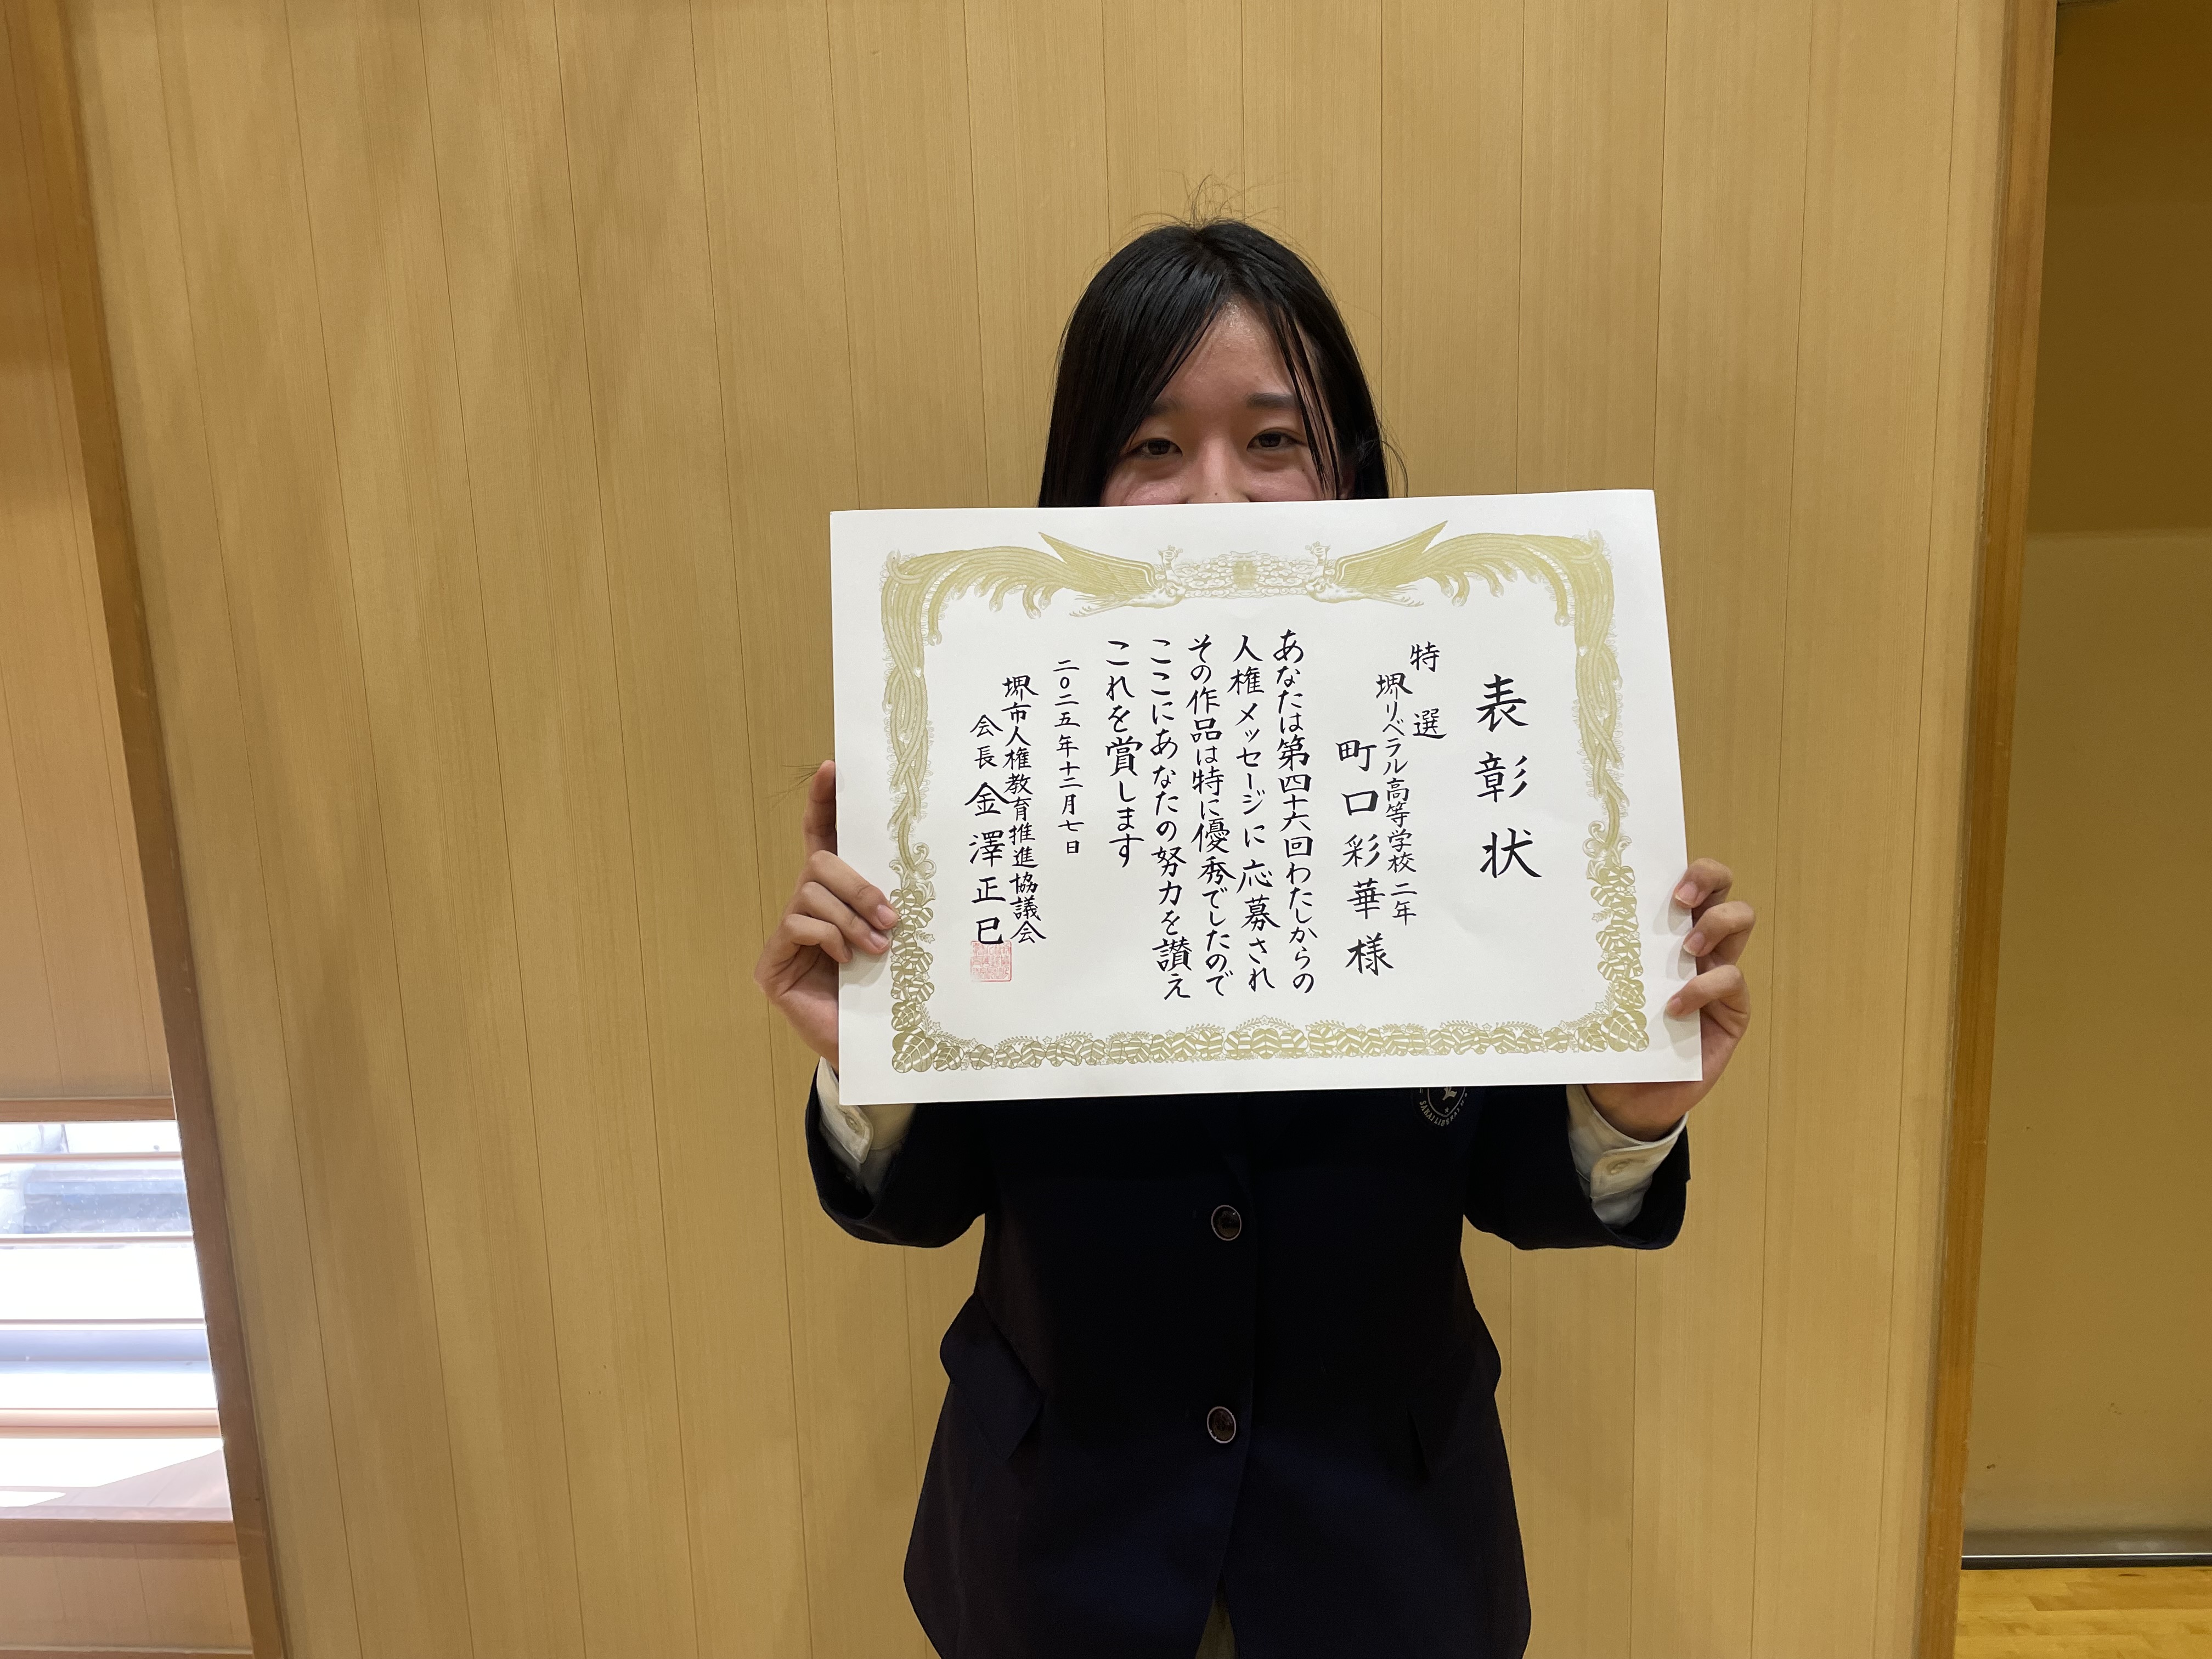 表彰状
特選
堺リベラル高等学校二年
町口彩華様
あなたは第四十六回わたしからの
人権メッセージに応募され
その作品は特に優秀でしたので
ここにあなたの努力を讃え
これを賞します
二〇二五年十二月七日
堺市人権教育推進協議会
会長 金澤正巳